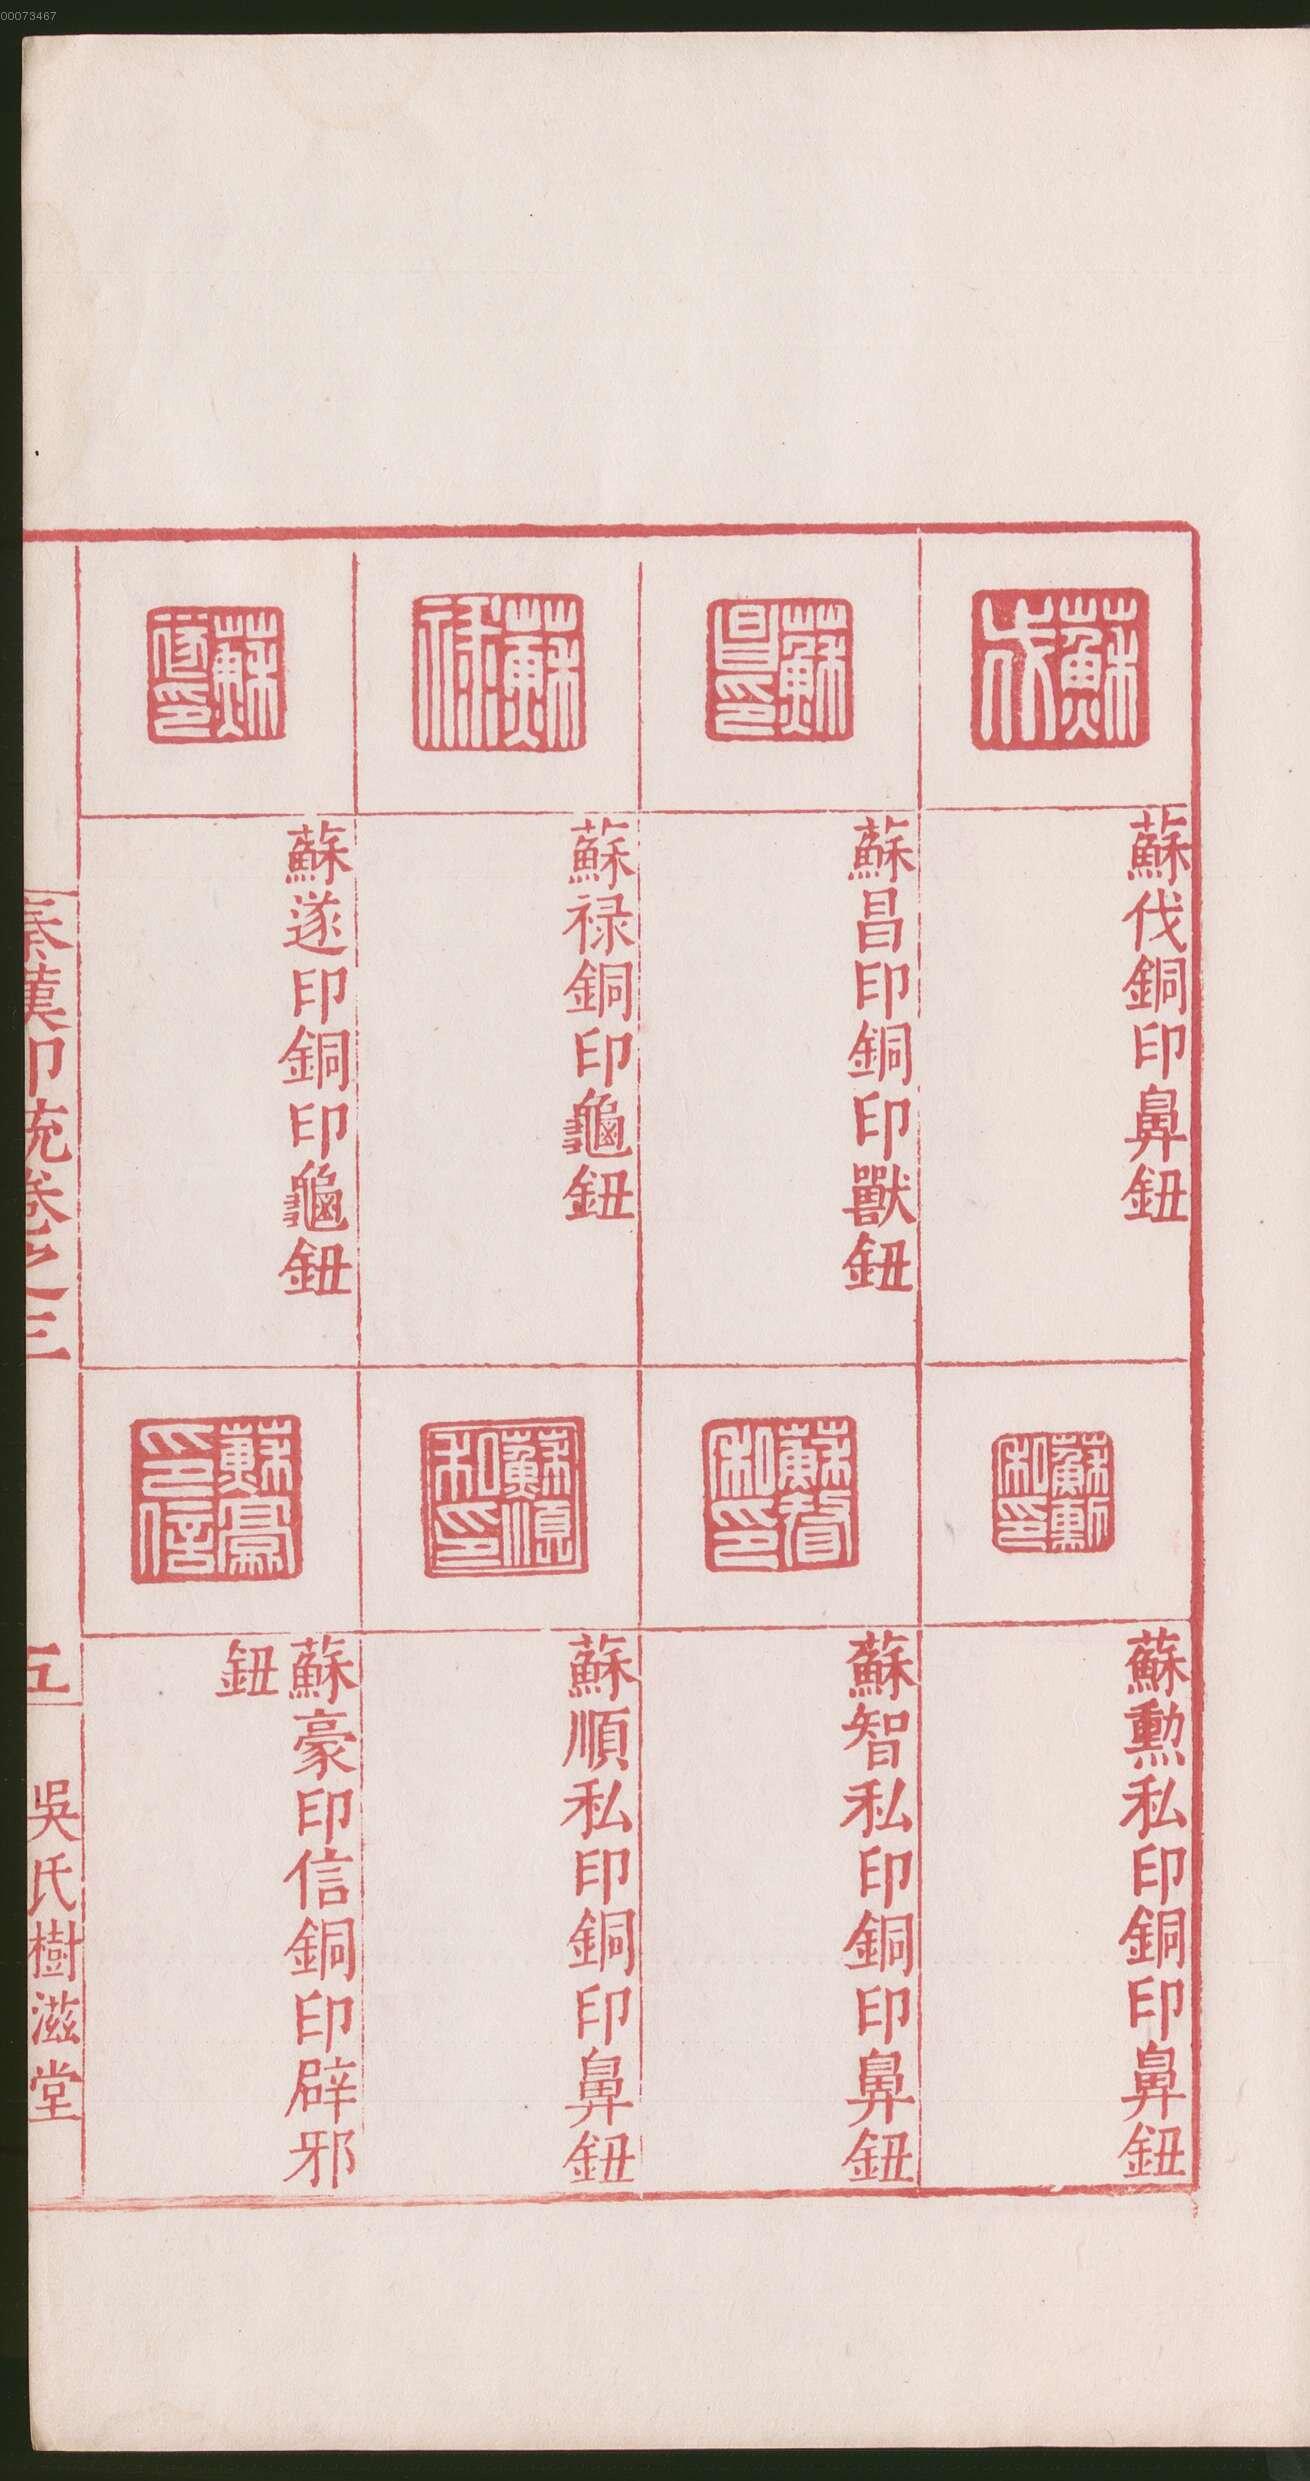 00073467
蘇伐
蘇伐銅印鼻鈕
蘇昌印
蘇昌印銅印獸鈕
蘇禄
蘇禄銅印龜鈕
蘇遂印
蘇遂印銅印龜鈕
蘇勳私印
蘇勳私印銅印鼻鈕
蘇智私印
蘇智私印銅印鼻鈕
蘇順私印
蘇順私印銅印鼻鈕
蘇豪印信
蘇豪印信銅印辟邪
鈕
秦漢印統卷之三
五
吳氏樹滋堂